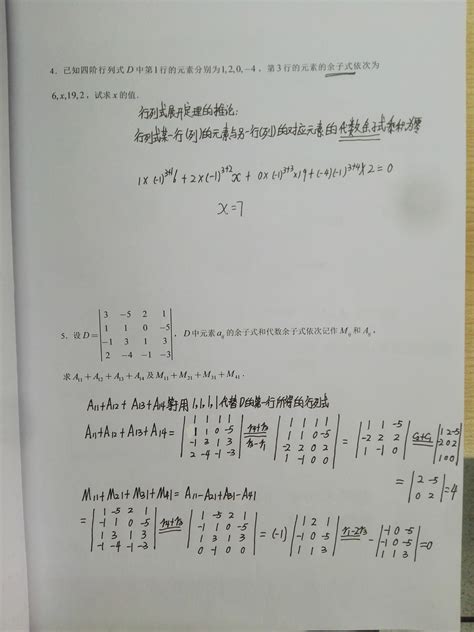 4. 已知四阶行列式 D 中第1行的元素分别为1,2,0,-4，第3行的元素的余子式依次为
6,x,19,2，试求 x 的值.
行列式展开定理的推论:
行列式某一行(列)的元素与另一行(列)的对应元素的代数余子式乘积为零
1×(-1)³⁺¹6 + 2×(-1)³⁺²x + 0×(-1)³⁺³×19+(-4)(-1)³⁺⁴×2=0
x=7
5. 设 D = | 3 -5 2 1 ; 1 1 0 -5 ; -1 3 1 3 ; 2 -4 -1 -3 |，D 中元素 aᵢⱼ 的余子式和代数余子式依次记作 Mᵢⱼ 和 Aᵢⱼ，
求 A₁₁+A₁₂+A₁₃+A₁₄ 及 M₁₁+M₂₁+M₃₁+M₄₁.
A₁₁+A₁₂+A₁₃+A₁₄等于用1,1,1,1代替D的第一行所得的行列式
A₁₁+A₁₂+A₁₃+A₁₄ = | 1 1 1 1 ; 1 1 0 -5 ; -1 3 1 3 ; 2 -4 -1 -3 | r₄+r₃ r₃-r₁ | 1 1 1 1 ; 1 1 0 -5 ; -2 2 0 2 ; 1 -1 0 0 | = | 1 1 -5 ; -2 2 2 ; 1 -1 0 | c₂+c₁ | 1 2 -5 ; -2 0 2 ; 1 0 0 |
= | 2 -5 ; 0 2 | = 4
M₁₁+M₂₁+M₃₁+M₄₁= A₁₁-A₂₁+A₃₁-A₄₁
= | 1 -5 2 1 ; -1 1 0 -5 ; 1 3 1 3 ; -1 -4 -1 -3 | r₄+r₃ | 1 -5 2 1 ; -1 1 0 -5 ; 1 3 1 3 ; 0 -1 0 0 | = (-1) | 1 2 1 ; -1 0 -5 ; 1 1 3 | r₁-2r₃ - | -1 0 -5 ; -1 0 -5 ; 1 1 3 | =0